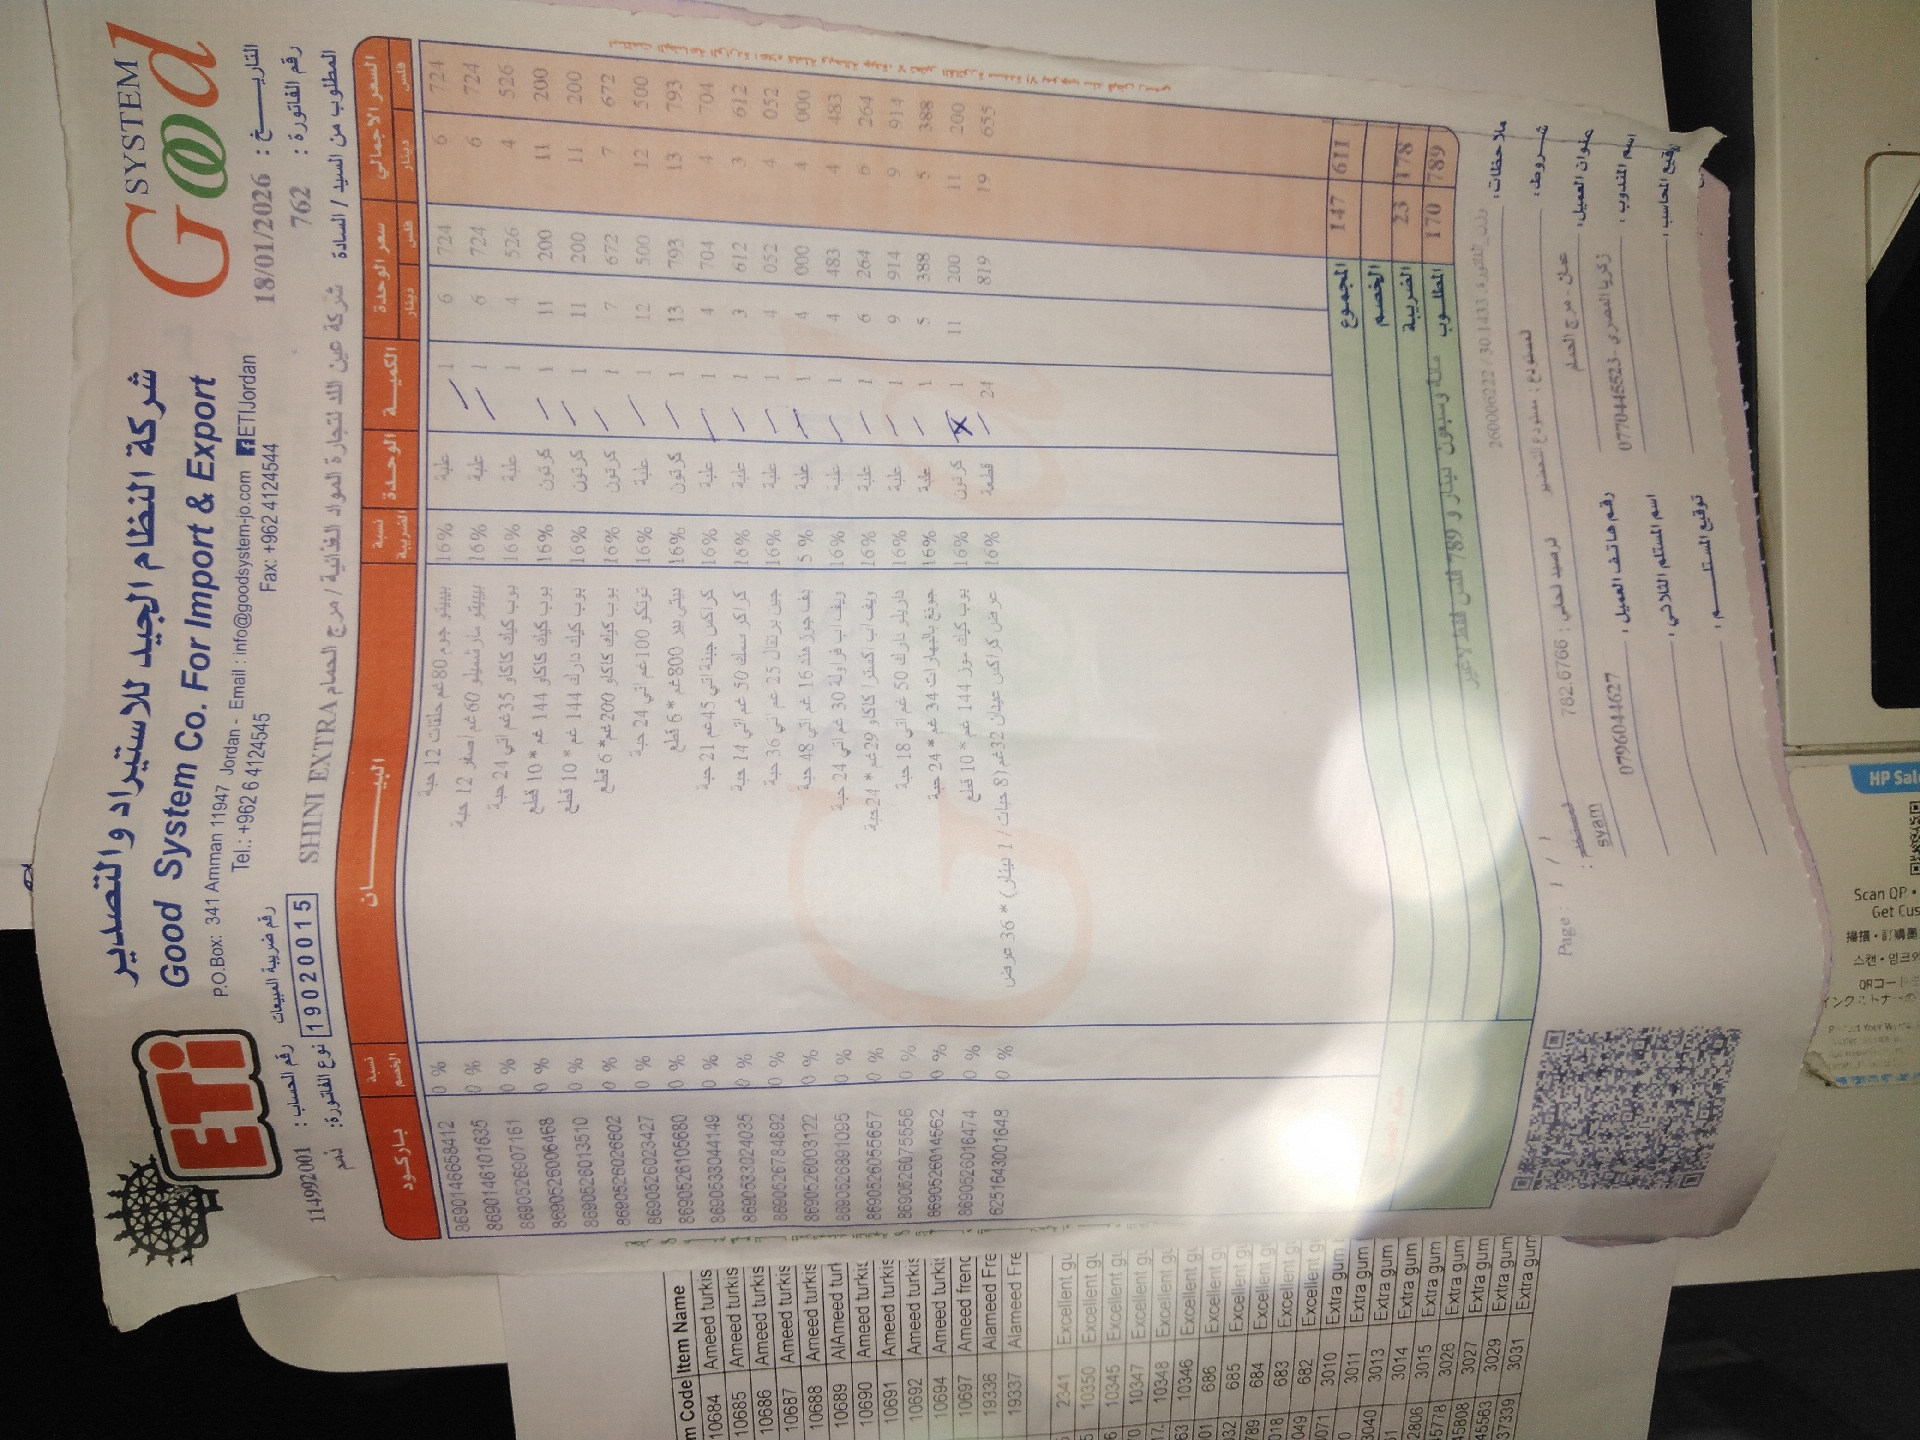 SYSTEM
Good
ETi
شركة النظام الجيد للاستيراد والتصدير
Good System Co. For Import & Export
P.O.Box: 341 Amman 11947 Jordan - Email : info@goodsystem-jo.com ETIJordan
Tel.: +962 6 4124545 Fax: +962 4124544
التاريـــخ : 18/01/2026
رقم الفاتورة : 762
رقم ضريبة المبيعات
19020015
رقم الحساب : 114992001
نوع الفاتورة: ذمم
المطلوب من السيد / السادة شركة عين اللد لتجارة المواد الغذائية / مرج الحمام SHINI EXTRA
باركود نسبة الخصم البيـــــان نسبة الضريبة الوحدة الكميـــة سعر الوحدة السعر الاجمالي
دينار فلس دينار فلس
8690146658412 0 % 80غم حلقات 12 حبة 16% علبة 1 6 724 6 724
8690146101635 0 % 60غم اصفر 12 حبة 16% علبة 1 6 724 6 724
8690526907161 0 % بوب كيك كاكاو 35غم اتي 24 حبة 16% علبة 1 4 526 4 526
8690526006468 0 % بوب كيك كاكاو 144 غم * 10 قطع 16% كرتون 1 11 200 11 200
8690526013510 0 % بوب كيك دارك 144 غم * 10 قطع 16% كرتون 1 11 200 11 200
8690526026602 0 % بوب كيك كاكاو 200غم * 6 قطع 16% كرتون 1 7 672 7 672
8690526023427 0 % توتكو 100غم اتي 24 حبة 16% علبة 1 12 500 12 500
8690526105680 0 % بيتي بير 800غم * 6 قطع 16% كرتون 1 13 793 13 793
8690533044149 0 % كراكس جبنة اتي 45غم 21 حبة 16% علبة 1 4 704 4 704
8690533024035 0 % كراكر سمك 50 غم اتي 14 حبة 16% علبة 1 3 612 3 612
8690526784892 0 % جين برتقال 25 غم اتي 36 حبة 16% علبة 1 4 052 4 052
8690526003122 0 % بف جوز هند 16 غم اتي 48 حبة 5 % علبة 1 4 000 4 000
8690526891095 0 % ويف اب فراولة 30 غم اتي 24 حبة 16% علبة 1 4 483 4 483
8690526055657 0 % ويف اب اكسترا كاكاو 29غم * 24حبة 16% علبة 1 6 264 6 264
8690526075556 0 % دارك 50 غم اتي 18 حبة 16% علبة 1 9 914 9 914
8690526014562 0 % بالبهارات 34 غم * 24 حبة 16% علبة 1 5 388 5 388
8690526016474 0 % بوب كيك موز 144 غم * 10 قطع 16% كرتون 1 11 200 11 200
6251643001648 0 % عرض كراكس عيدان 32غم (8 حبات / 1 دينار) * 36 عرض 16% قطعة 24 819 19 655
المجموع 147 611
الخصم
الضريبة 23 178
المطلوب 170 789
مئة وسبعون دينار و 789 فلس فقط لا غير
ملاحظات : 260006222 / 30.1433
شـــروط : مستودع : مستودع التحضير
رصيد لحالي : 782.6766
عنوان العميل : عمان - مرج الحمام
اسم المندوب : زكريا المصري-0770445523
رقم هاتف العميل : 0796044627
syam
توقيع المحاسب :
اسم المستلم الثلاثي :
توقيع المستلـــم :
Page : 1 / 1
Item Name
10684 Ameed turkis
10685 Ameed turkis
10686 Ameed turkis
10687 Ameed turkis
10688 Ameed turkis
10689 AlAmeed turk
10690 Ameed turkis
10691 Ameed turkis
10692 Ameed turkis
10694 Ameed turkis
10697 Ameed frenc
19336 Alameed Fre
19337 Alameed Fre
2341 Excellent gu
10350 Excellent gu
10345 Excellent gu
10347 Excellent gu
10348 Excellent gu
10346 Excellent gu
686 Excellent gu
685 Excellent gu
684 Excellent gu
683 Excellent gu
682 Excellent gu
3010 Extra gum
3011 Extra gum
3013 Extra gum
3014 Extra gum
3015 Extra gum
3026 Extra gum
3027 Extra gum
3029 Extra gum
3031 Extra gum
Get Cus